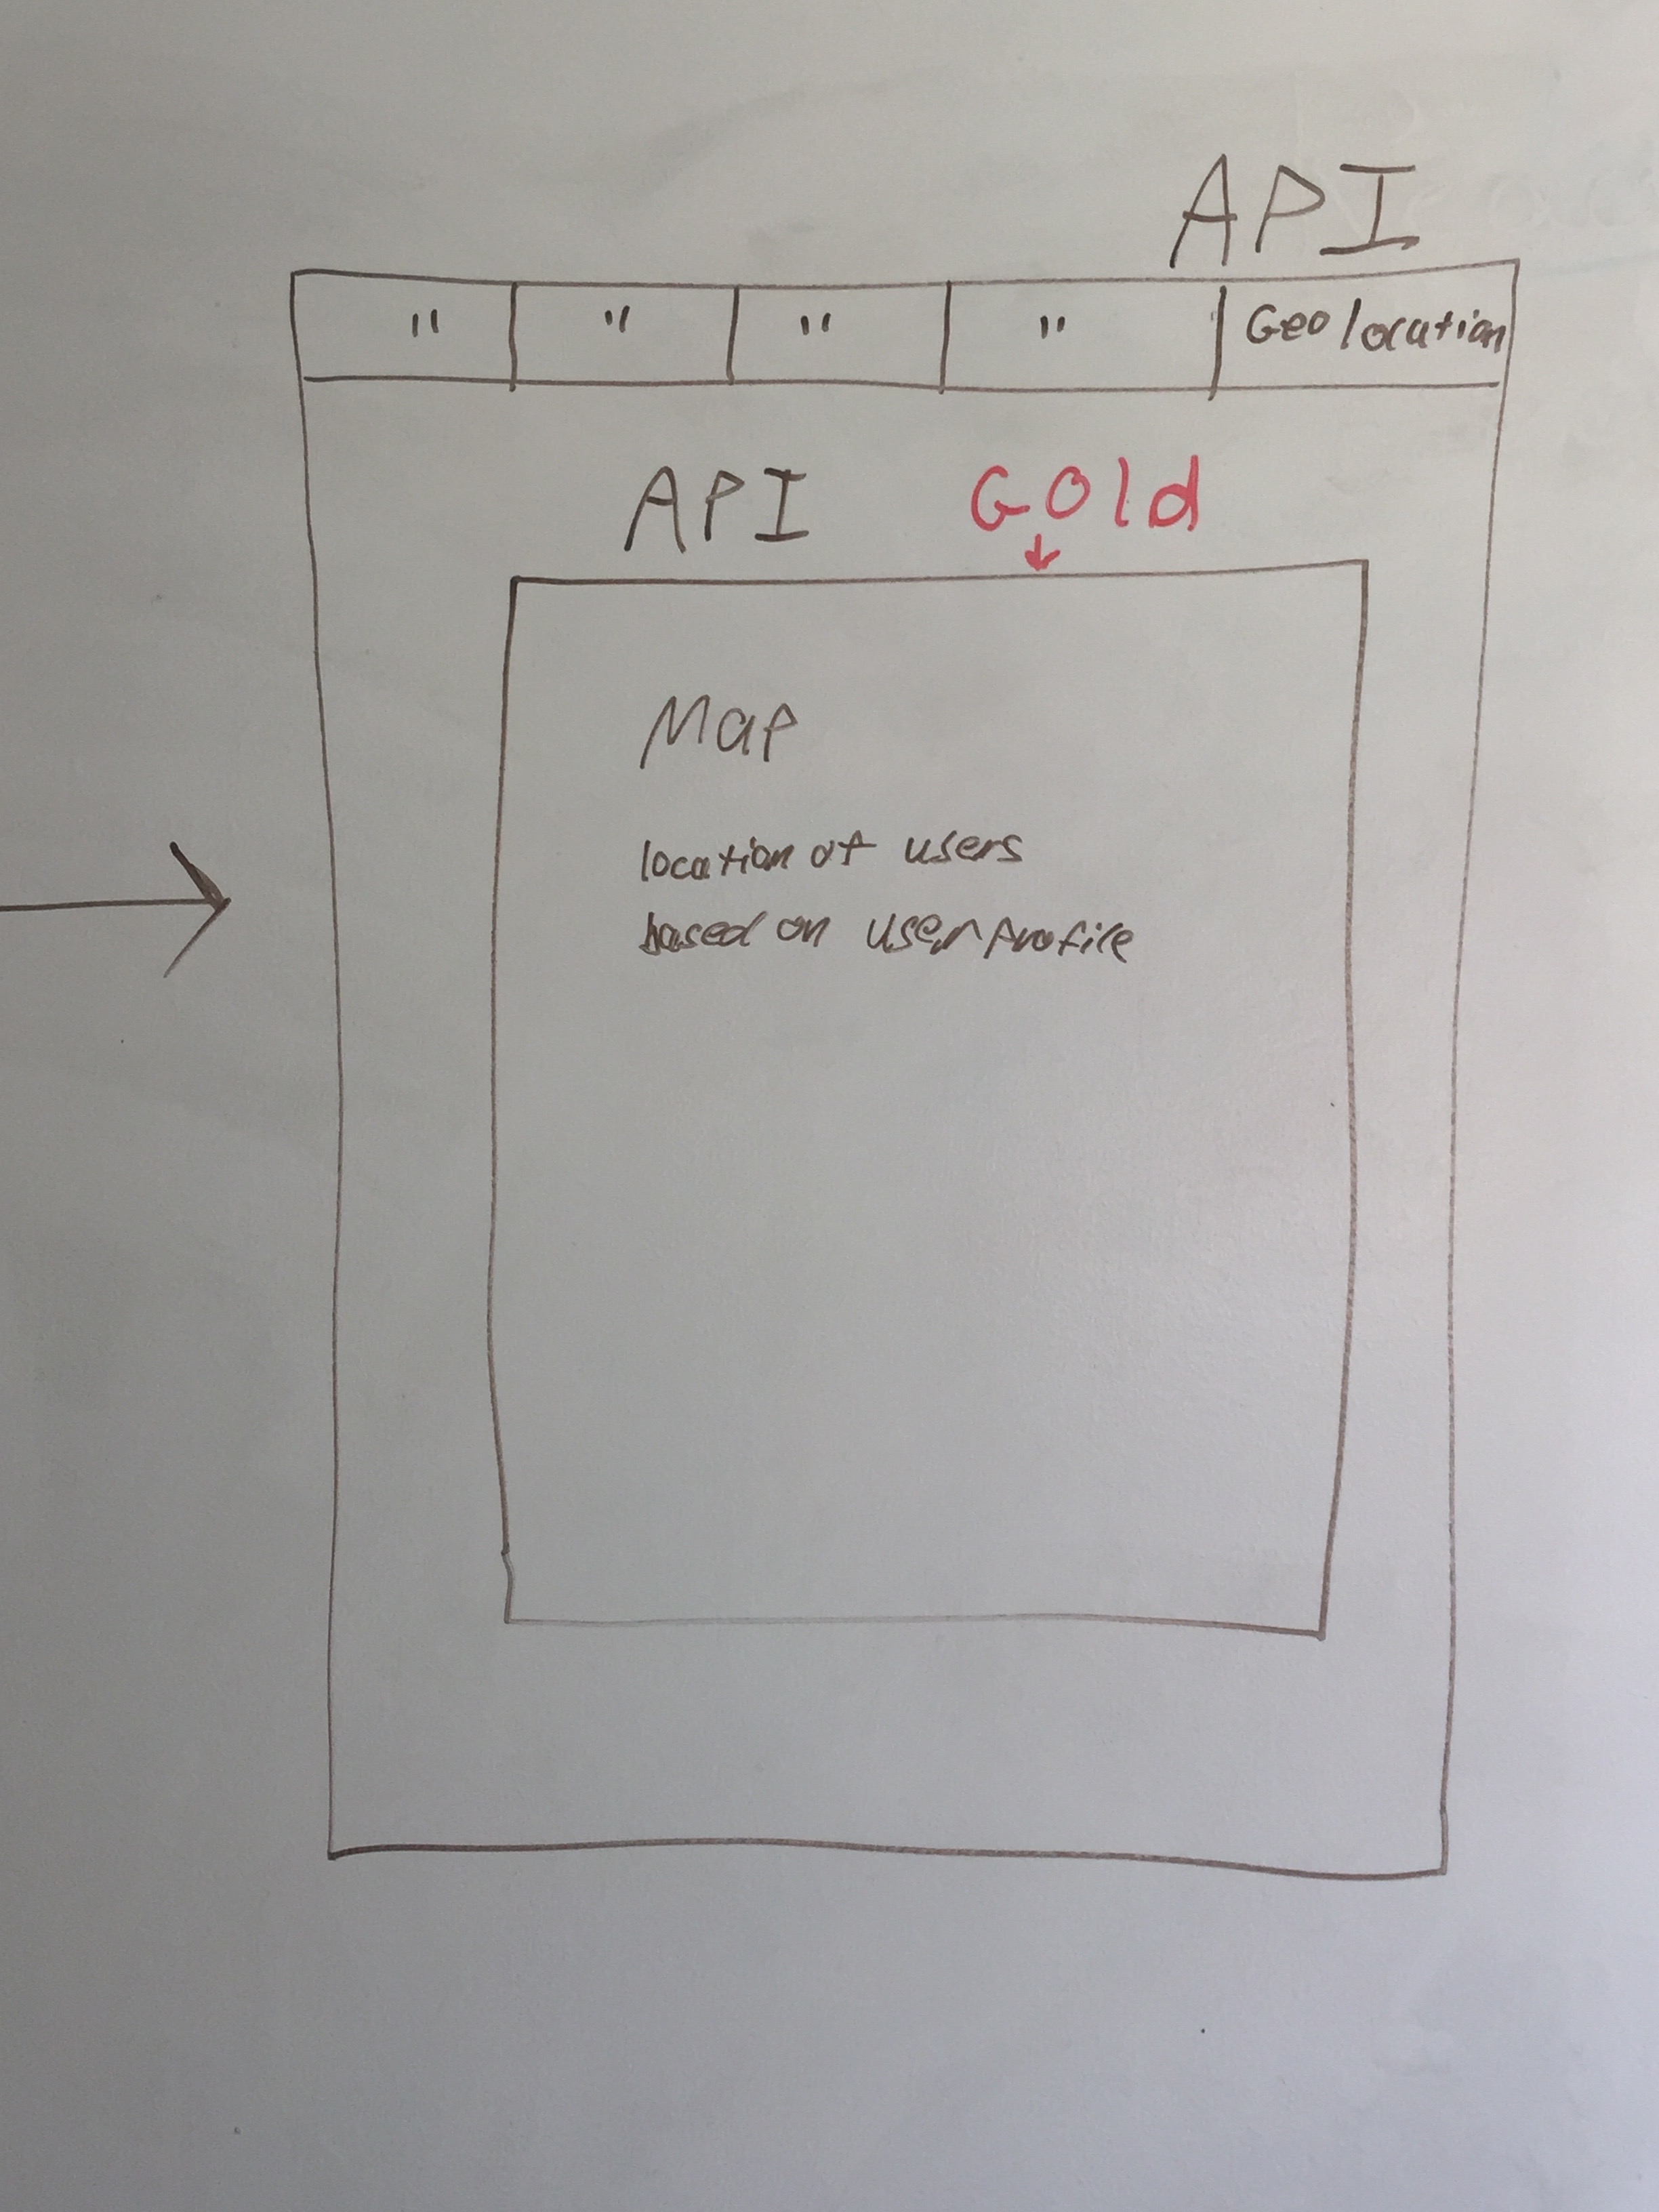 API
" " " " Geolocation
API Gold
Map
location of users
based on user profile